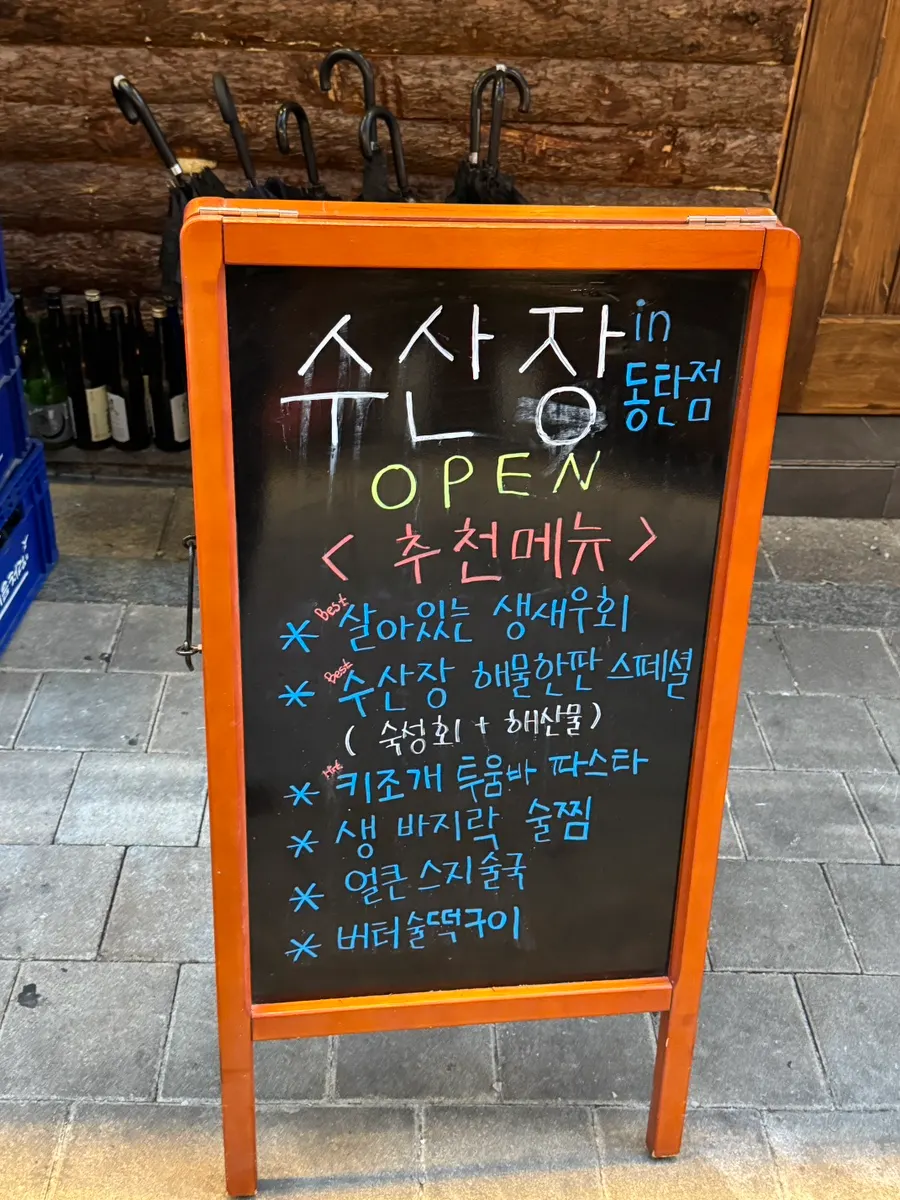 수산장 in
동탄점
OPEN
< 추천메뉴 >
* Best 살아있는 생새우회
* Best 수산장 해물한판 스페셜
( 숙성회 + 해산물 )
* Hit 키조개 투움바 파스타
* 생 바지락 술찜
* 얼큰 스지술국
* 버터술떡구이